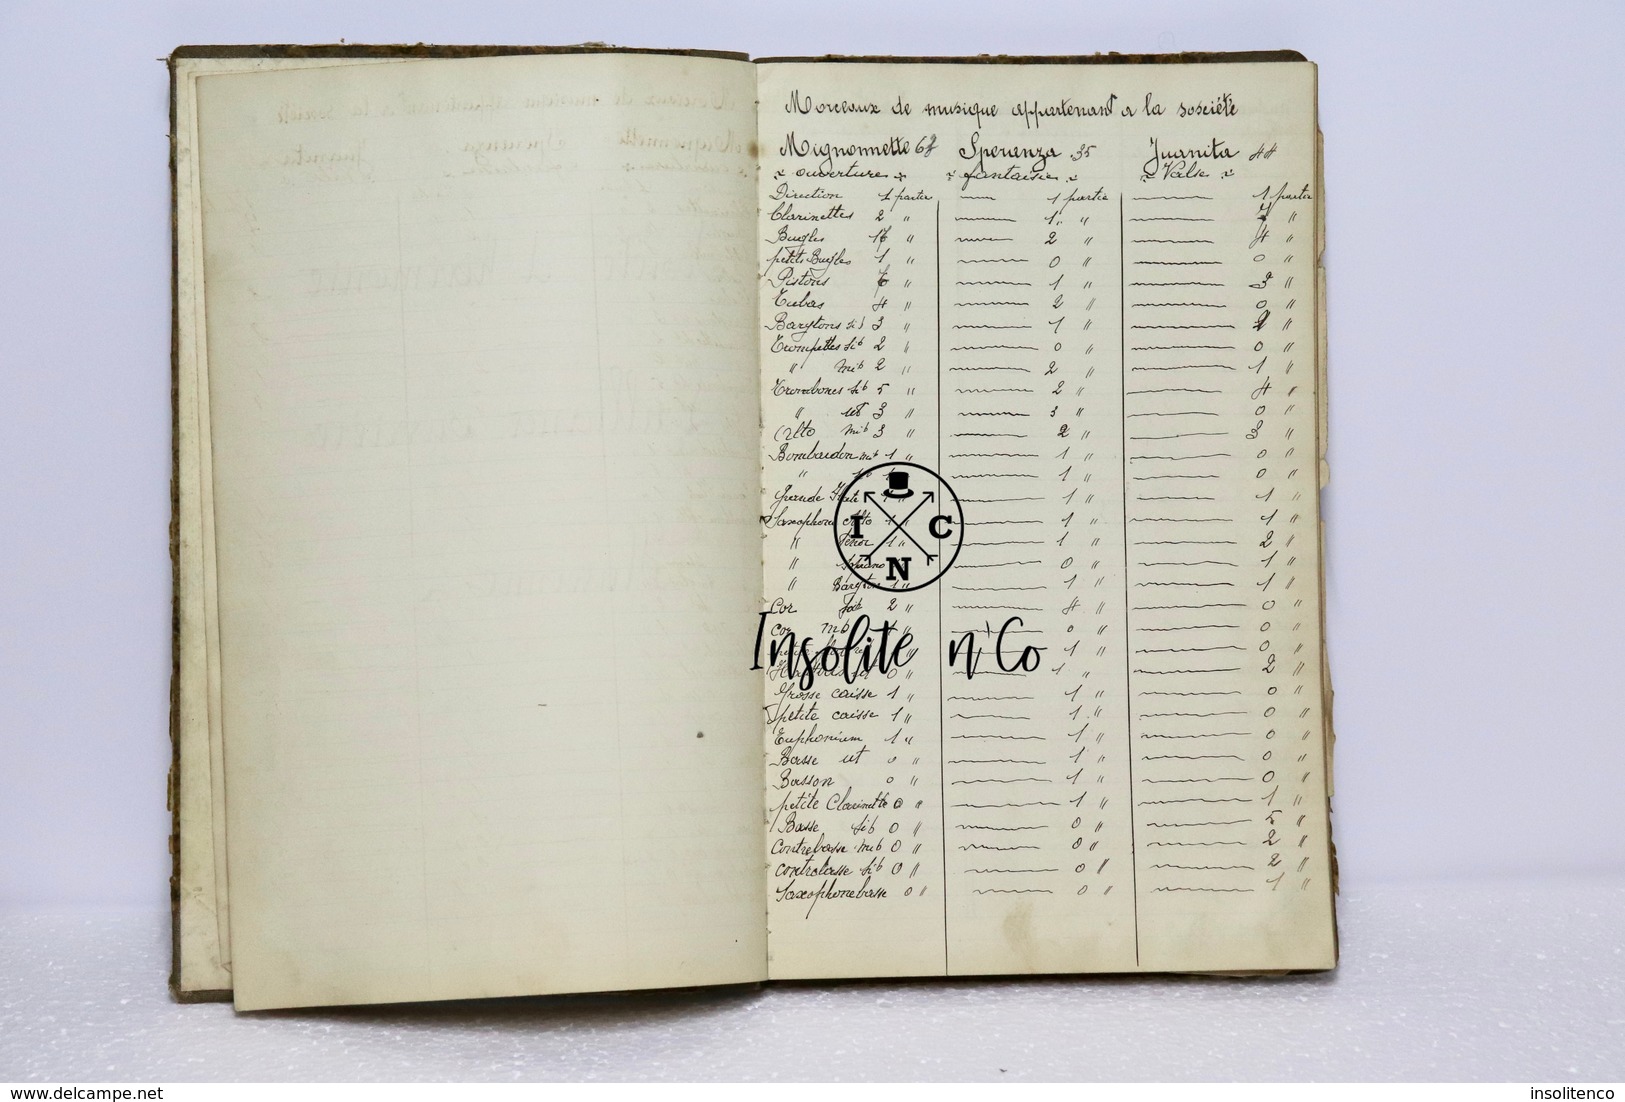 Morceaux de musique appartenant a la sosciété
Mignonnette Speranza 35 Juanita 44
ouverture fantaisie Valse
Direction 1 partie 1 partie 1 partie
Clarinettes 2 " 1 " "
Bugles " 2 " 4 "
petits Bugles 1 " 0 " 0 "
Pistons " 1 " 3 "
Tubas 4 " 2 " 0 "
Barytons sib 3 " 1 " 2 "
Trompettes sib 2 " 0 " 0 "
" mib 2 " 2 " 1 "
Trombones sib 5 " 2 " 4 "
" ut 3 " 3 " 0 "
Alto mib 3 " 2 " 3 "
Bombardon mib 1 " 1 " 0 "
" 1 " 0 "
Grande " 1 " 1 "
Saxophone Alto 1 " 1 " 1 "
" Tenor 1 " 1 " 2 "
" 0 " 1 "
" Baryton 1 " 1 " 1 "
Cor 2 " 4 " 0 "
Cor mib " 0 " 0 "
" 1 " 0 "
0 " 1 " 2 "
Grosse caisse 1 " 1 " 0 "
petite caisse 1 " 1 " 0 "
Euphonium 1 " 1 " 0 "
Basse ut 0 " 1 " 0 "
Basson 0 " 1 " 0 "
petite Clarinette 0 " 1 " 1 "
Basse sib 0 " 0 " 5 "
Contrebasse mib 0 " 0 " 2 "
contrebasse sib 0 " 0 " 2 "
Saxophone basse 0 " 0 " 1 "
I C
N
Insolite n'Co
www.delcampe.net
insolitenco